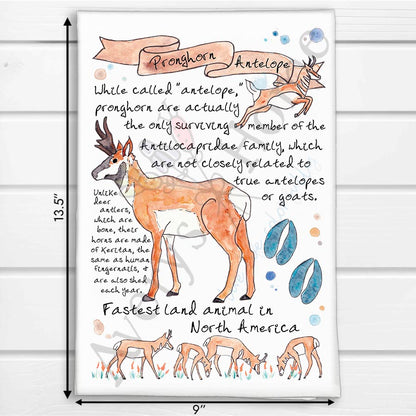 Pronghorn Antelope
While called "antelope,"
pronghorn are actually
the only surviving member of the
Antilocapridae family, which
are not closely related to
true antelopes
or goats.
Unlike
deer
antlers,
which are
bone, their
horns are made
of Keritan, the
same as human
fingernails, &
are also shed
each year.
Fastest land animal in
North America
13.5"
9"